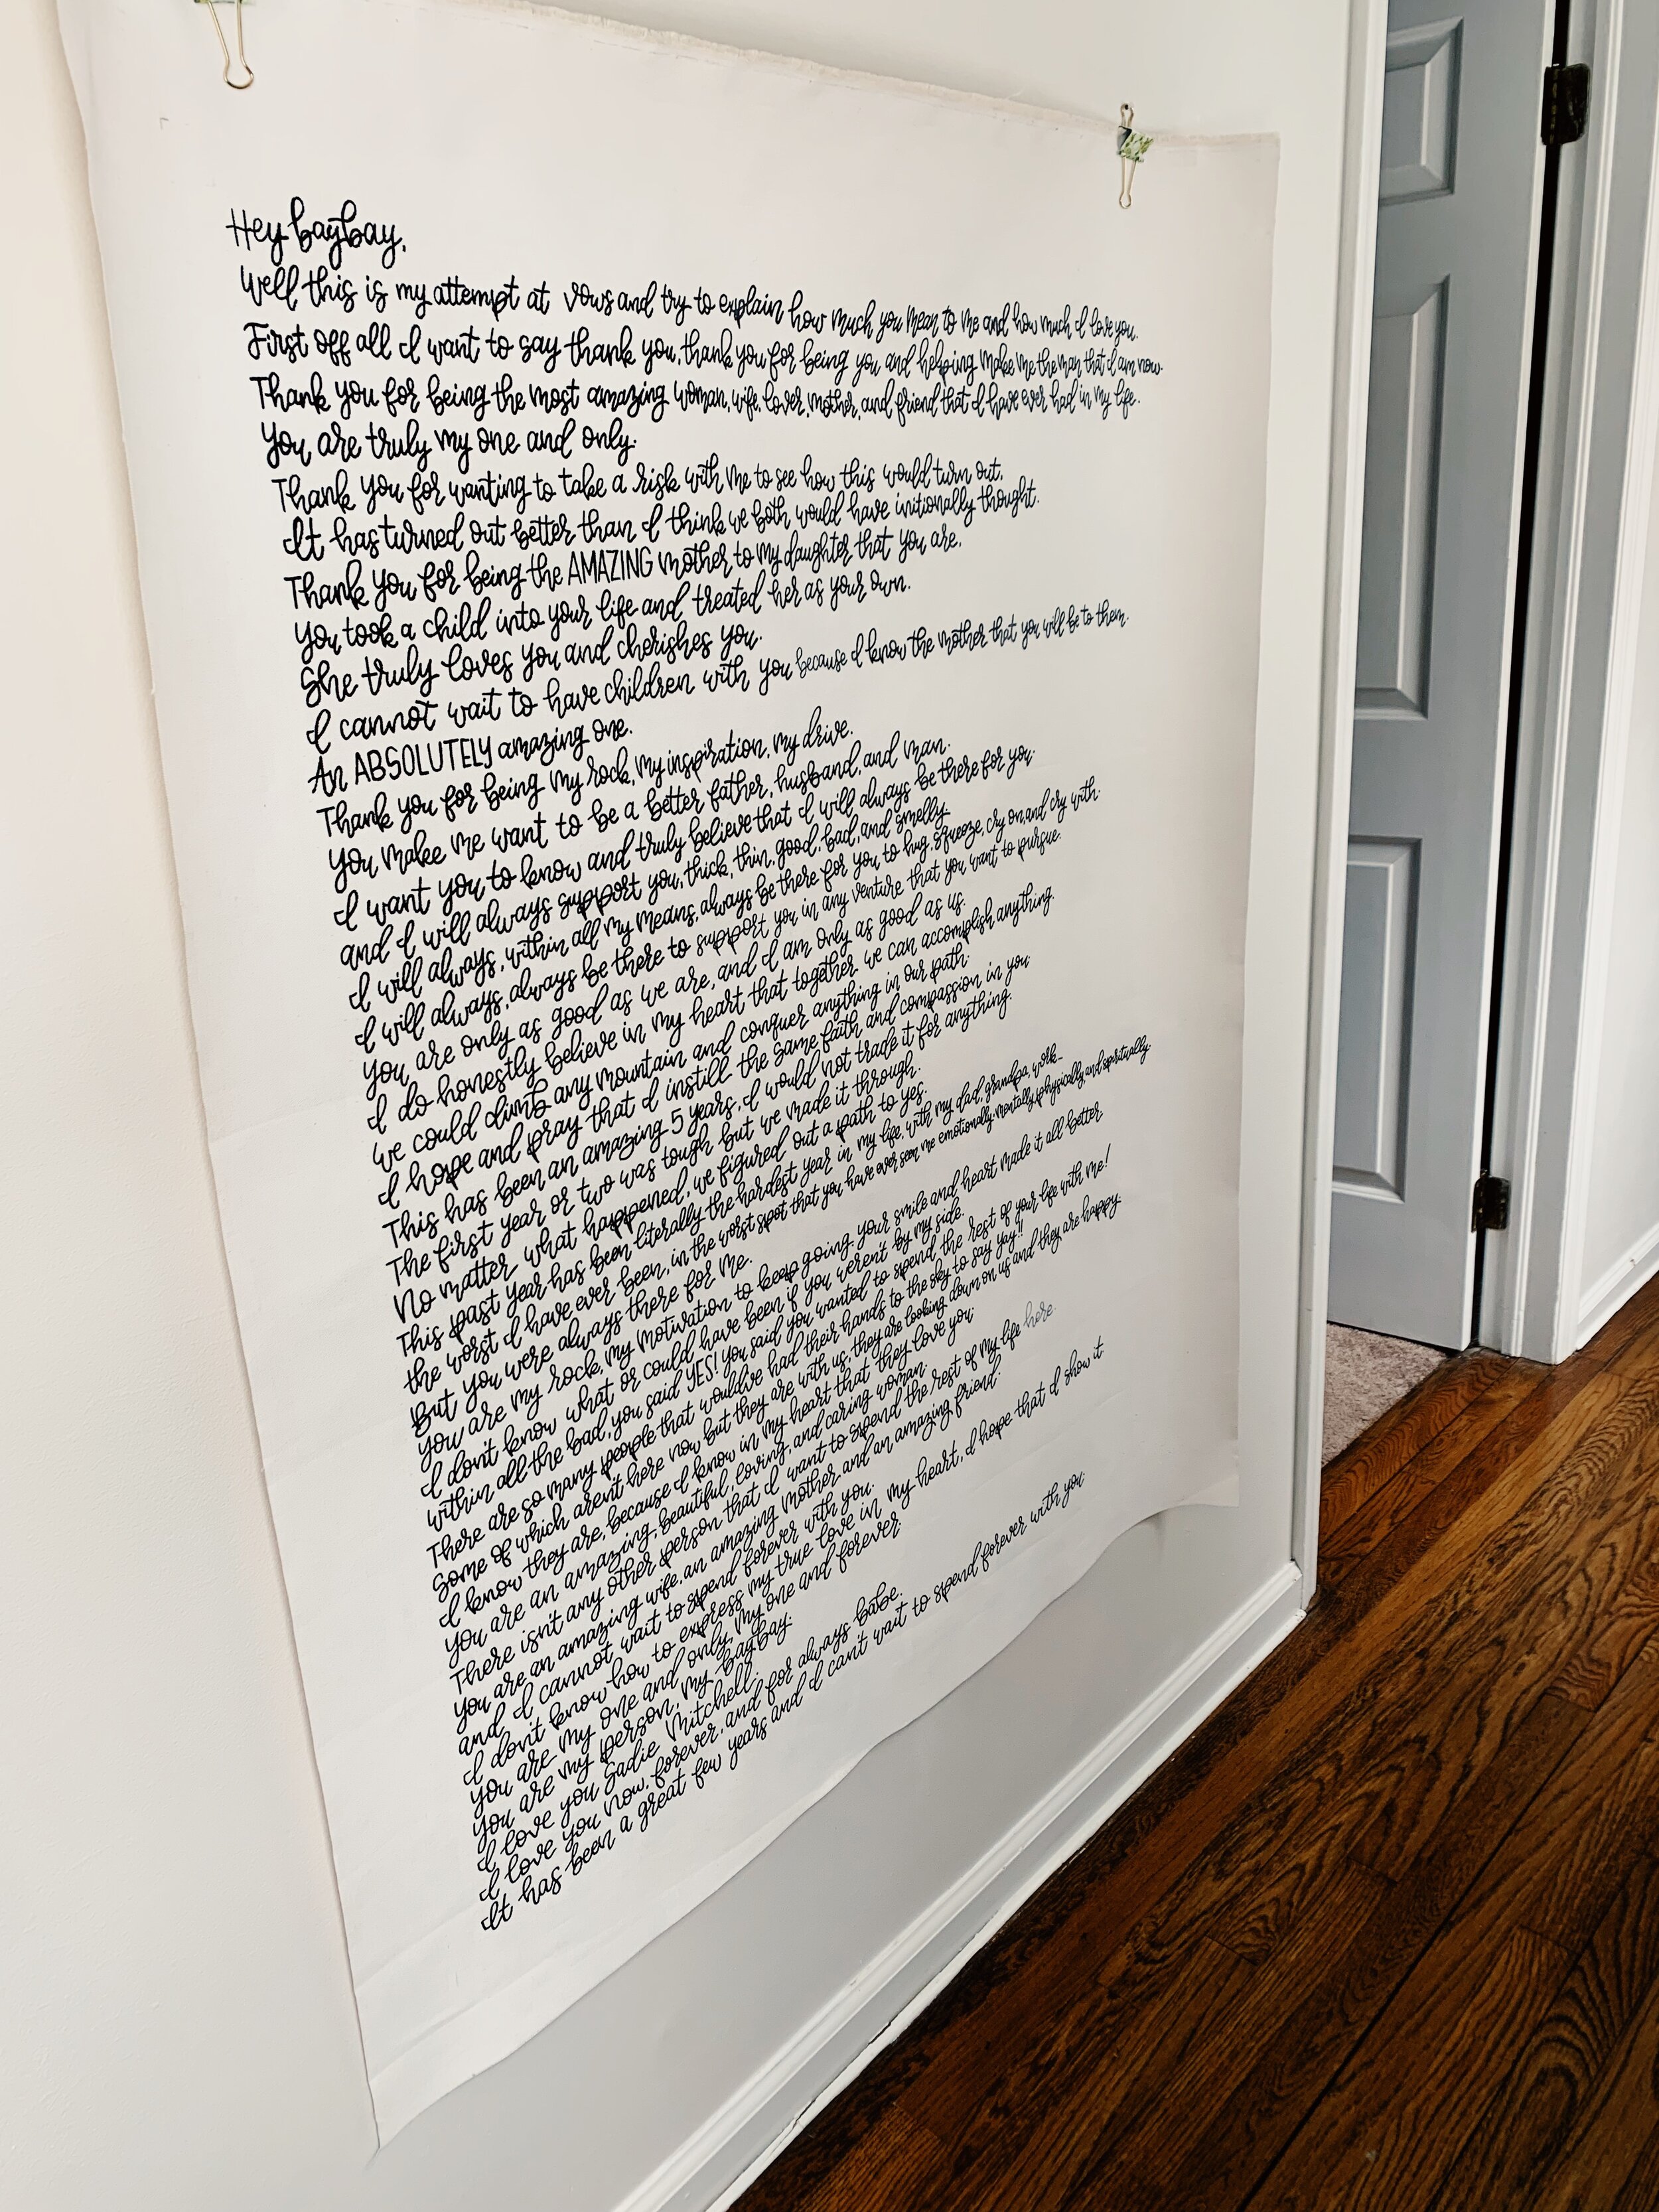 Hey baybay,
Well this is my attempt at vows and try to explain how much you mean to me and how much I love you.
First off all I want to say thank you, thank you for being you and helping make me the man that I am now.
Thank you for being the most amazing woman, wife, lover, mother, and friend that I have ever had in my life.
You are truly my one and only.
Thank you for wanting to take a risk with me to see how this would turn out.
It has turned out better than I think we both would have initionally thought.
Thank you for being the AMAZING mother to my daughter that you are.
You took a child into your life and treated her as your own.
She truly loves you and cherishes you.
I cannot wait to have children with you because I know the mother that you will be to them.
An ABSOLUTELY amazing one.
Thank you for being my rock, my inspiration, my drive.
You make me want to be a better father, husband, and man.
I want you to know and truly believe that I will always be there for you
and I will always support you, thick, thin, good, bad, and smelly.
I will always, within all my means, always be there for you to hug, squeeze, cry on, and cry with.
I will always, always be there to support you in any venture that you want to pursue.
You are only as good as we are, and I am only as good as us.
I do honestly believe in my heart that together we can accomplish anything.
We could climb any mountain and conquer anything in our path.
I hope and pray that I instill the same faith and compassion in you.
This has been an amazing 5 years, I would not trade it for anything.
The first year or two was tough but we made it through.
No matter what happened, we figured out a path to yes.
This past year has been literally the hardest year in my life, with my dad, grandpa, work...
the worst I have ever been, in the worst spot that you have ever seen me emotionally, mentally, physically, and spiritually.
But you were always there for me.
You are my rock, my motivation to keep going, your smile and heart made it all better.
I don't know what or could have been if you weren't by my side.
within all the bad, you said YES! You said you wanted to spend the rest of your life with me!
There are so many people that would've had their hands to the sky to say yay!!
Some of which aren't here now but they are with us, they are looking down on us and they are happy.
I know they are, because I know in my heart that they love you.
You are an amazing, beautiful, loving, and caring woman.
There isn't any other person that I want to spend the rest of my life here.
You are an amazing wife, an amazing mother and an amazing friend.
and I cannot wait to spend forever with you.
I don't know how to express my true love in my heart, I hope that I show it.
You are my one and only, my one and forever.
You are my person, my baybay.
I love you Sadie Mitchell.
I love you now, forever, and for always babe.
It has been a great few years and I can't wait to spend forever with you.